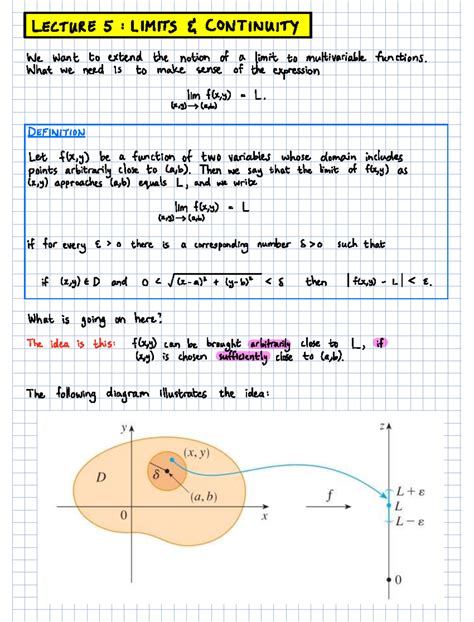 LECTURE 5 : LIMITS & CONTINUITY
We want to extend the notion of a limit to multivariable functions.
What we need is to make sense of the expression
lim f(x,y) = L.
(x,y)→(a,b)
DEFINITION
Let f(x,y) be a function of two variables whose domain includes
points arbitrarily close to (a,b). Then we say that the limit of f(x,y) as
(x,y) approaches (a,b) equals L, and we write
lim f(x,y) = L
(x,y)→(a,b)
if for every ε > 0 there is a corresponding number δ > 0 such that
if (x,y) ∈ D and 0 < √((x-a)² + (y-b)²) < δ then |f(x,y) - L| < ε.
What is going on here?
The idea is this: f(x,y) can be brought arbitrarily close to L, if
(x,y) is chosen sufficiently close to (a,b).
The following diagram illustrates the idea:
y z
(x, y)
D δ
(a, b) f L + ε
L
0 x L − ε
0